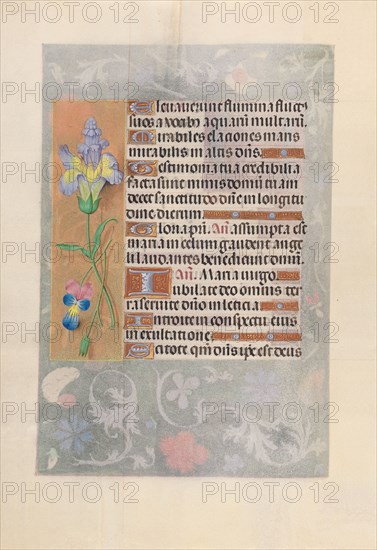 Elevaverunt flumina fluct
suos a vocibus aquarum multarum.
Mirabiles elaciones maris
mirabilis in altis dns.
Testimonia tua credibilia
facta sunt nimis domum tuam
decet sanctitudo dne in longitu
dine dierum.
Gloria pri. An. Assumpta est
maria in celum gaudent ange
li laudantes benedicunt dnm.
An. Maria virgo.
Iubilate deo omnis ter
ra servite dno in leticia.
Introite in conspectu eius
in exultatione.
Scitote qm dns ipse est deus